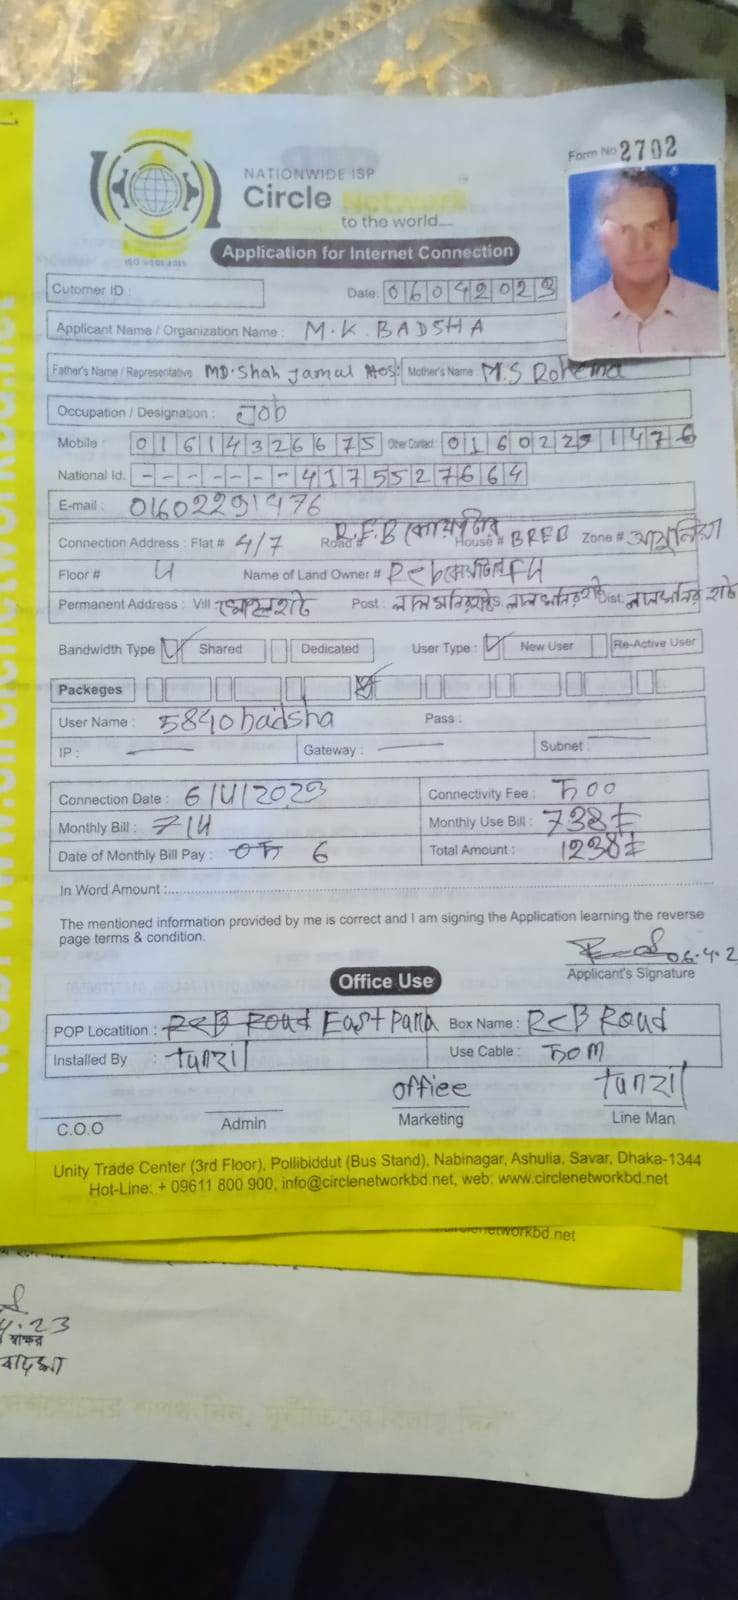 Form No 2702
NATIONWIDE ISP
Circle Network
to the world....
Application for Internet Connection
Cutomer ID :
Date: 06042023
Applicant Name / Organization Name : M.K. BADSHA
Father's Name / Representative MD. Shah Jamal Hos: Mother's Name M.S Rohema
Occupation / Designation : Job
Mobile : 01614326675 Other Contact : 01602291476
National Id. - - - - - - - 4175527664
E-mail : 01602291476
Connection Address : Flat # 4/7 Road # R.E.B House # BREB Zone #
Floor # 4 Name of Land Owner # Reb
Permanent Address : Vill Post : লালমনিরহাট লালমনিরহাট Dist. লালমনিরহাট
Bandwidth Type Shared Dedicated User Type : New User Re-Active User
Packeges
User Name : 5840badsha Pass :
IP : Gateway : Subnet :
Connection Date : 6/4/2023 Connectivity Fee : 500
Monthly Bill : 714 Monthly Use Bill : 738
Date of Monthly Bill Pay : 6 Total Amount : 1238
In Word Amount :
The mentioned information provided by me is correct and I am signing the Application learning the reverse
page terms & condition.
06.4.2
Applicant's Signature
Office Use
POP Locatition : ReB Road East Para Box Name : ReB Road
Installed By : tunzil Use Cable : 50m
office tunzil
C.O.O Admin Marketing Line Man
Unity Trade Center (3rd Floor), Pollibiddut (Bus Stand), Nabinagar, Ashulia, Savar, Dhaka-1344
Hot-Line: + 09611 800 900, info@circlenetworkbd.net, web: www.circlenetworkbd.net
circlenetworkbd.net
4.23